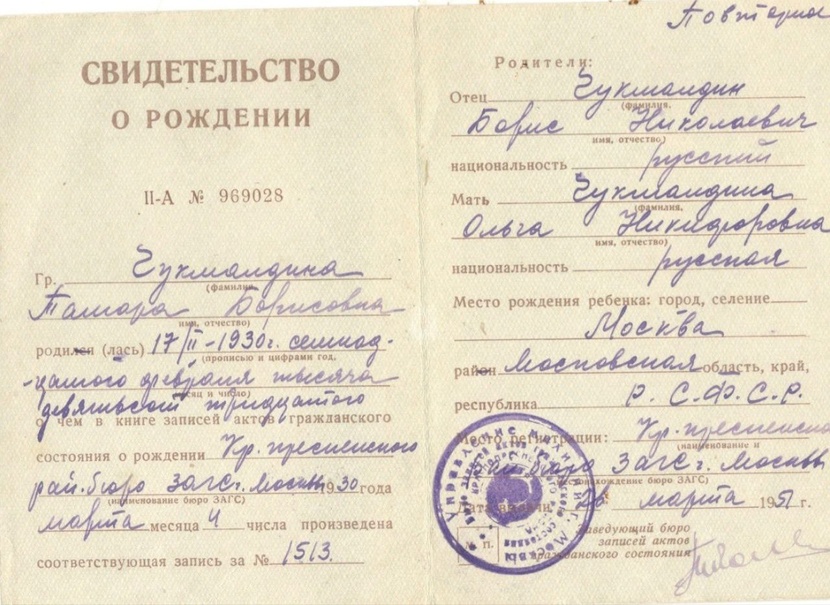 СВИДЕТЕЛЬСТВО
О РОЖДЕНИИ
II-А № 969028
Гр. Чукмалдина
(фамилия,
Тамара Борисовна
имя, отчество)
родился (лась) 17/II-1930г. семнад-
(прописью и цифрами год,
цатого февраля тысяча
месяц и число)
девятьсот тридцатого
о чем в книге записей актов гражданского
состояния о рождении Кр. пресненского
рай. бюро ЗАГС г. Москвы 1930 года
(наименование бюро ЗАГС)
марта месяца 4 числа произведена
соответствующая запись за № 1513.
Родители:
Отец Чукмалдин
(фамилия,
Борис Николаевич
имя, отчество)
национальность русский
Мать Чукмалдина
(фамилия,
Ольга Никифоровна
имя, отчество)
национальность русская
Место рождения ребенка: город, селение
Москва
район Московская область, край,
республика Р.С.Ф.С.Р.
Место регистрации: Кр. пресненско
(наименование и
бюро ЗАГС г. Москвы
местонахождение бюро ЗАГС)
Дата выдачи марта 1951 г.
М. п.
Заведующий бюро
записей актов
гражданского состояния